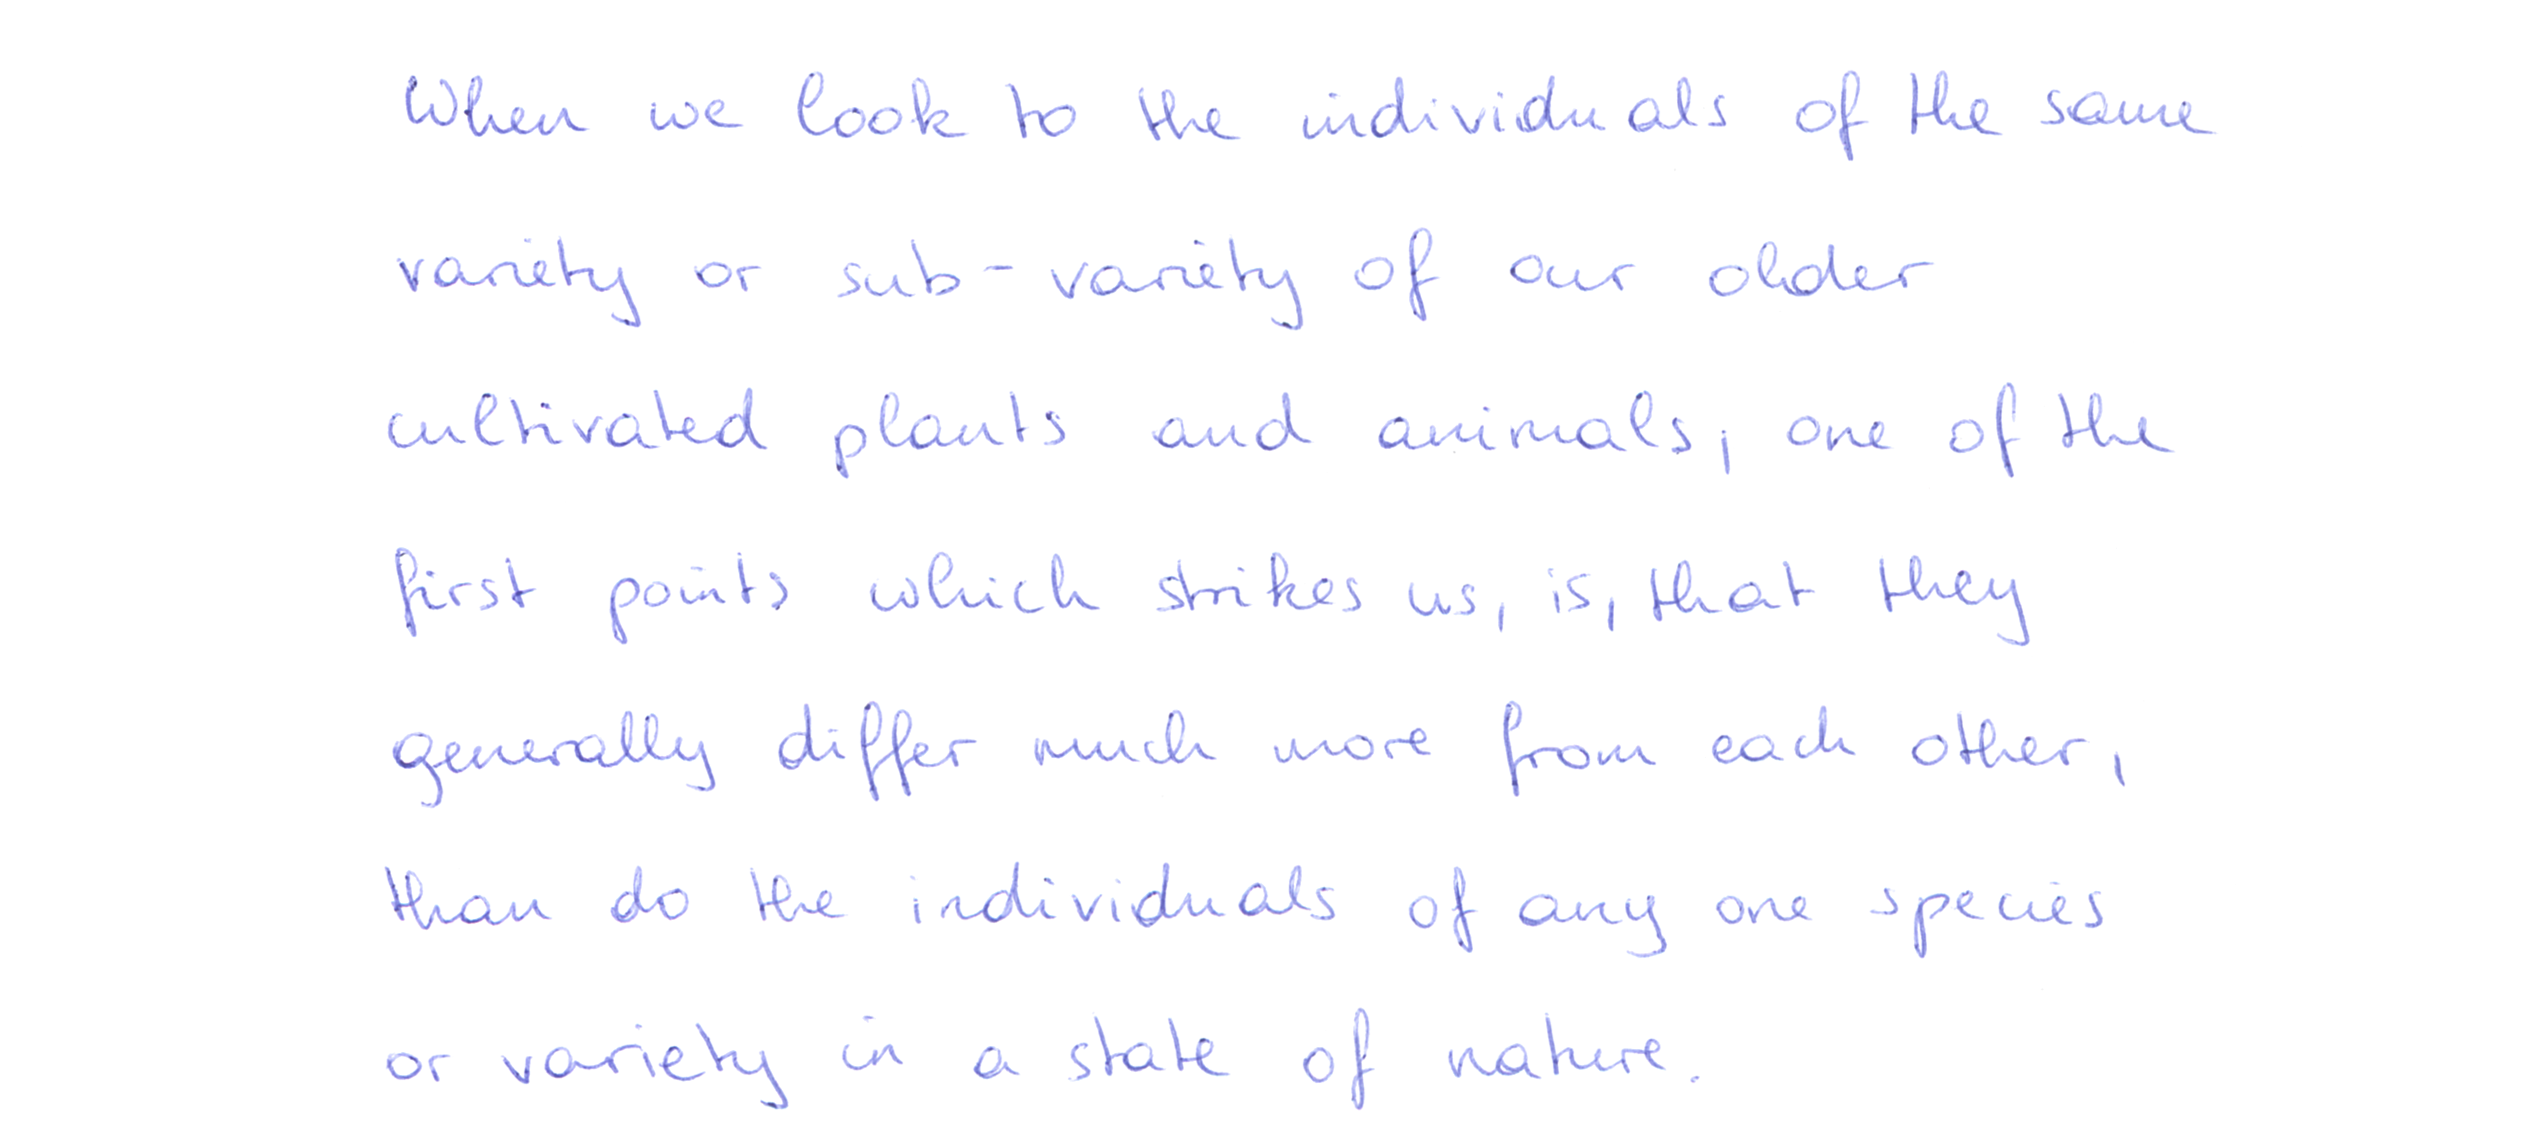 When we look to the individuals of the same
variety or sub-variety of our older
cultivated plants and animals, one of the
first points which strikes us, is, that they
generally differ much more from each other,
than do the individuals of any one species
or variety in a state of nature.